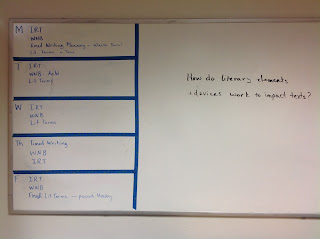 M IRT
WNB
Email Writing
Lit Terms
T IRT
WNB
Lit Terms
W IRT
WNB
Lit Terms
Th Timed Writing
WNB
IRT
F IRT
WNB
Lit Terms
How do literary elements
+ devices work to impact texts?